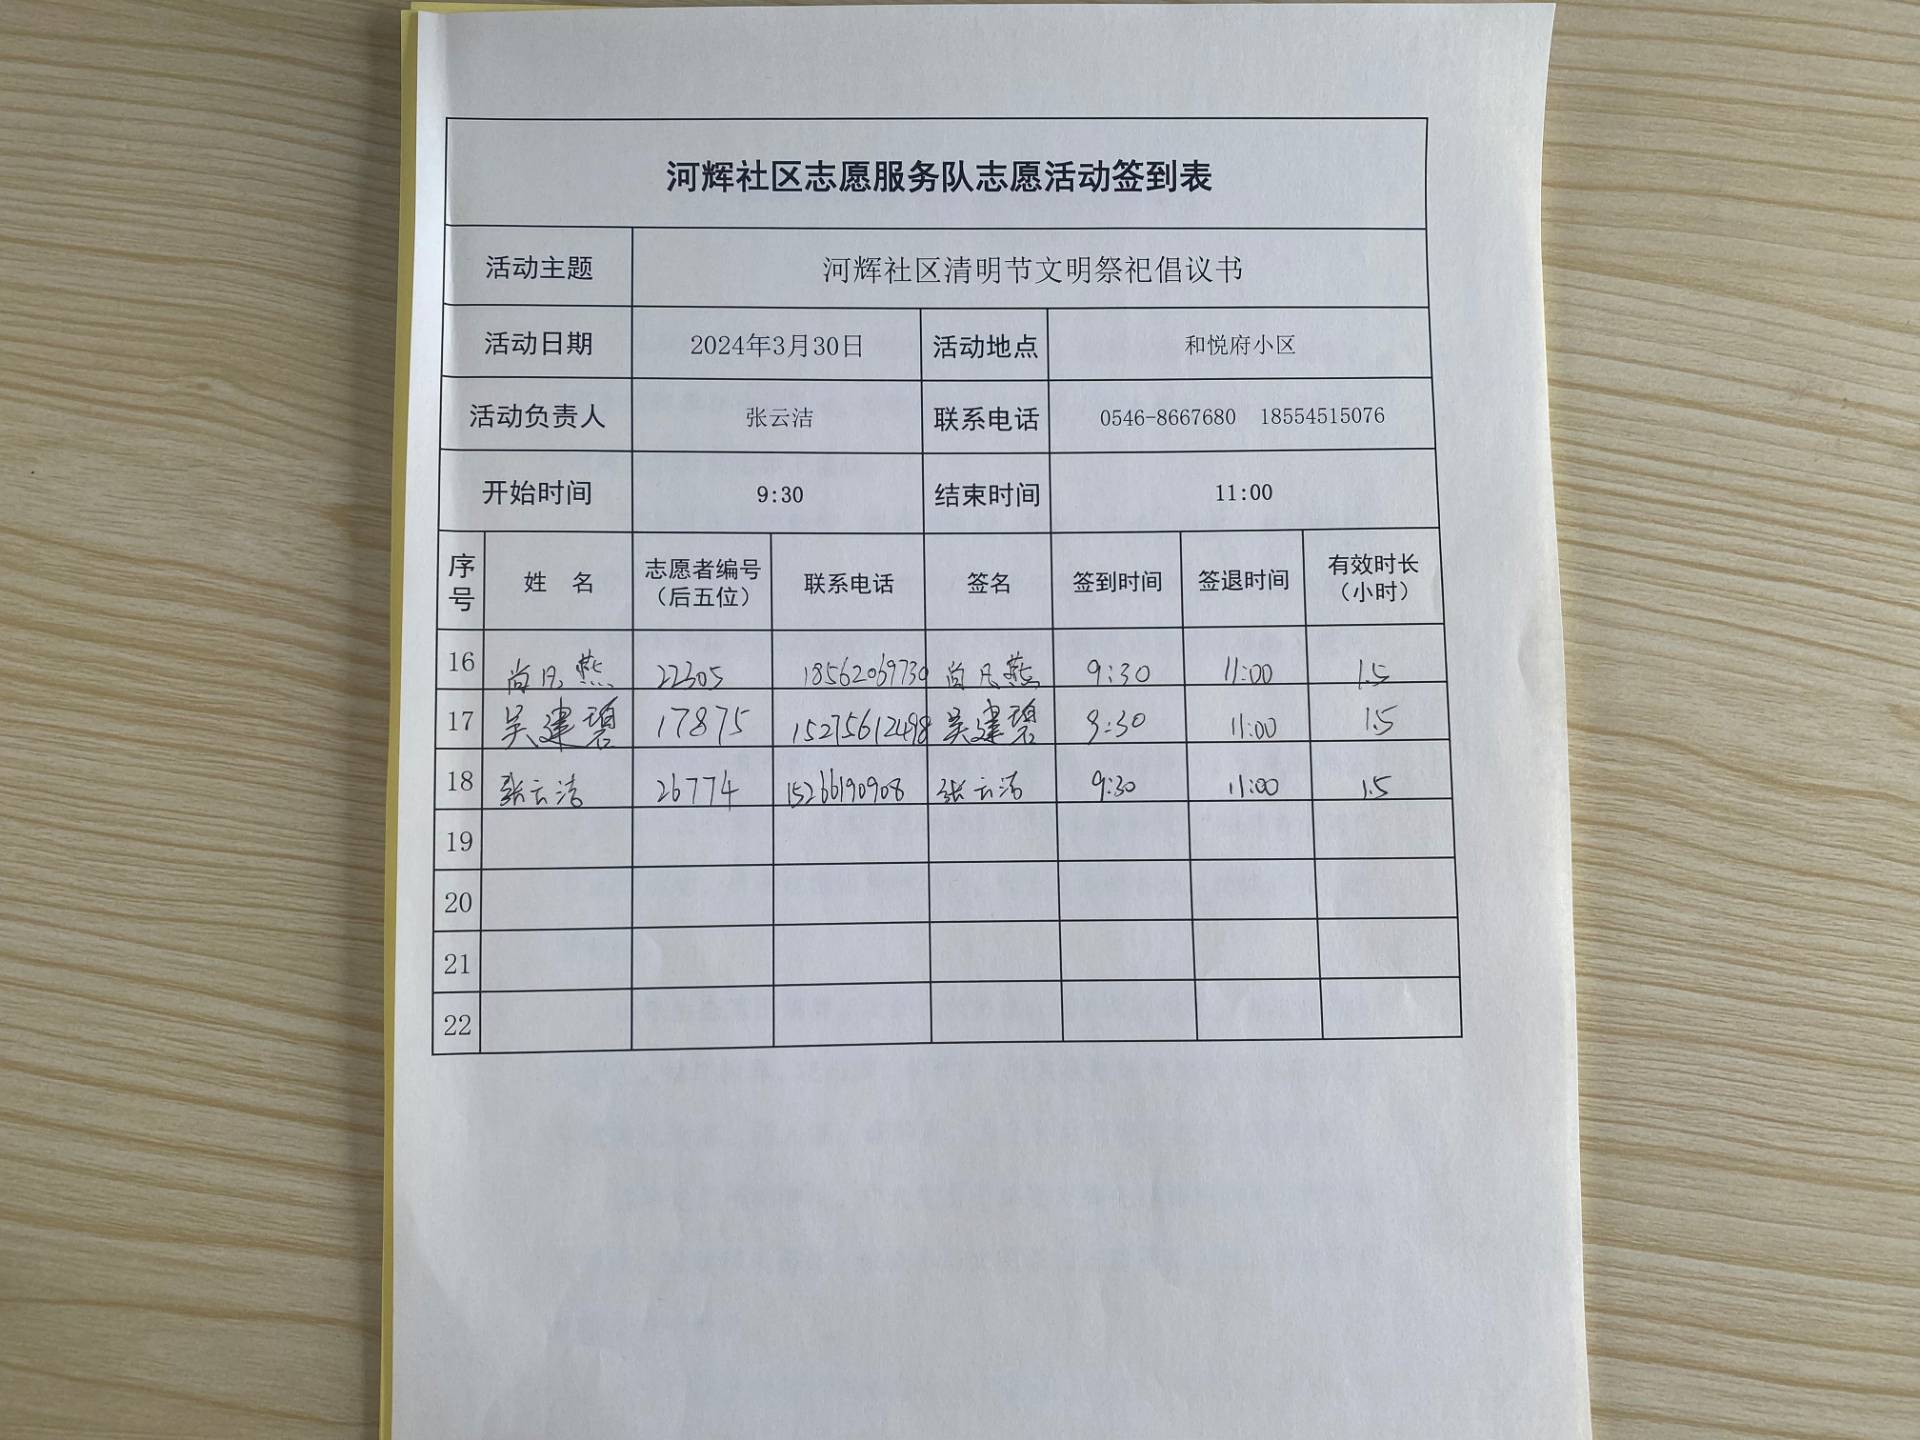 河辉社区志愿服务队志愿活动签到表
活动主题 河辉社区清明节文明祭祀倡议书
活动日期 2024年3月30日 活动地点 和悦府小区
活动负责人 张云洁 联系电话 0546-8667680 18554515076
开始时间 9:30 结束时间 11:00
序号 姓 名 志愿者编号（后五位） 联系电话 签名 签到时间 签退时间 有效时长（小时）
16 尚凡燕 22305 18562069730 尚凡燕 9:30 11:00 1.5
17 吴建碧 17875 15275612498 吴建碧 9:30 11:00 1.5
18 张云洁 26774 15266190908 张云洁 9:30 11:00 1.5
19
20
21
22